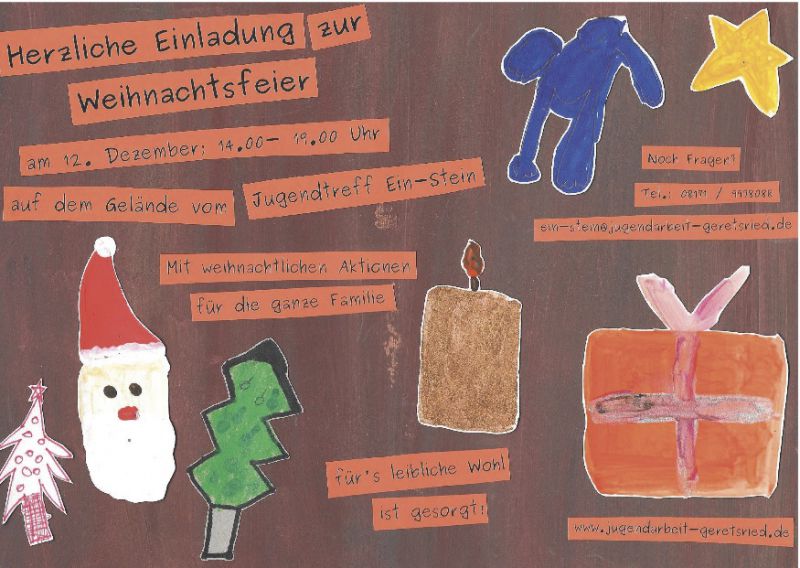 Herzliche Einladung zur
Weihnachtsfeier
am 12. Dezember: 14.00– 19.00 Uhr
auf dem Gelände vom Jugendtreff Ein-Stein
Mit weihnachtlichen Aktionen
für die ganze Familie
für's leibliche Wohl
ist gesorgt!
Noch Fragen?
Tel.: 08171 / 9998088
ein-stein@jugendarbeit-geretsried.de
www.jugendarbeit-geretsried.de